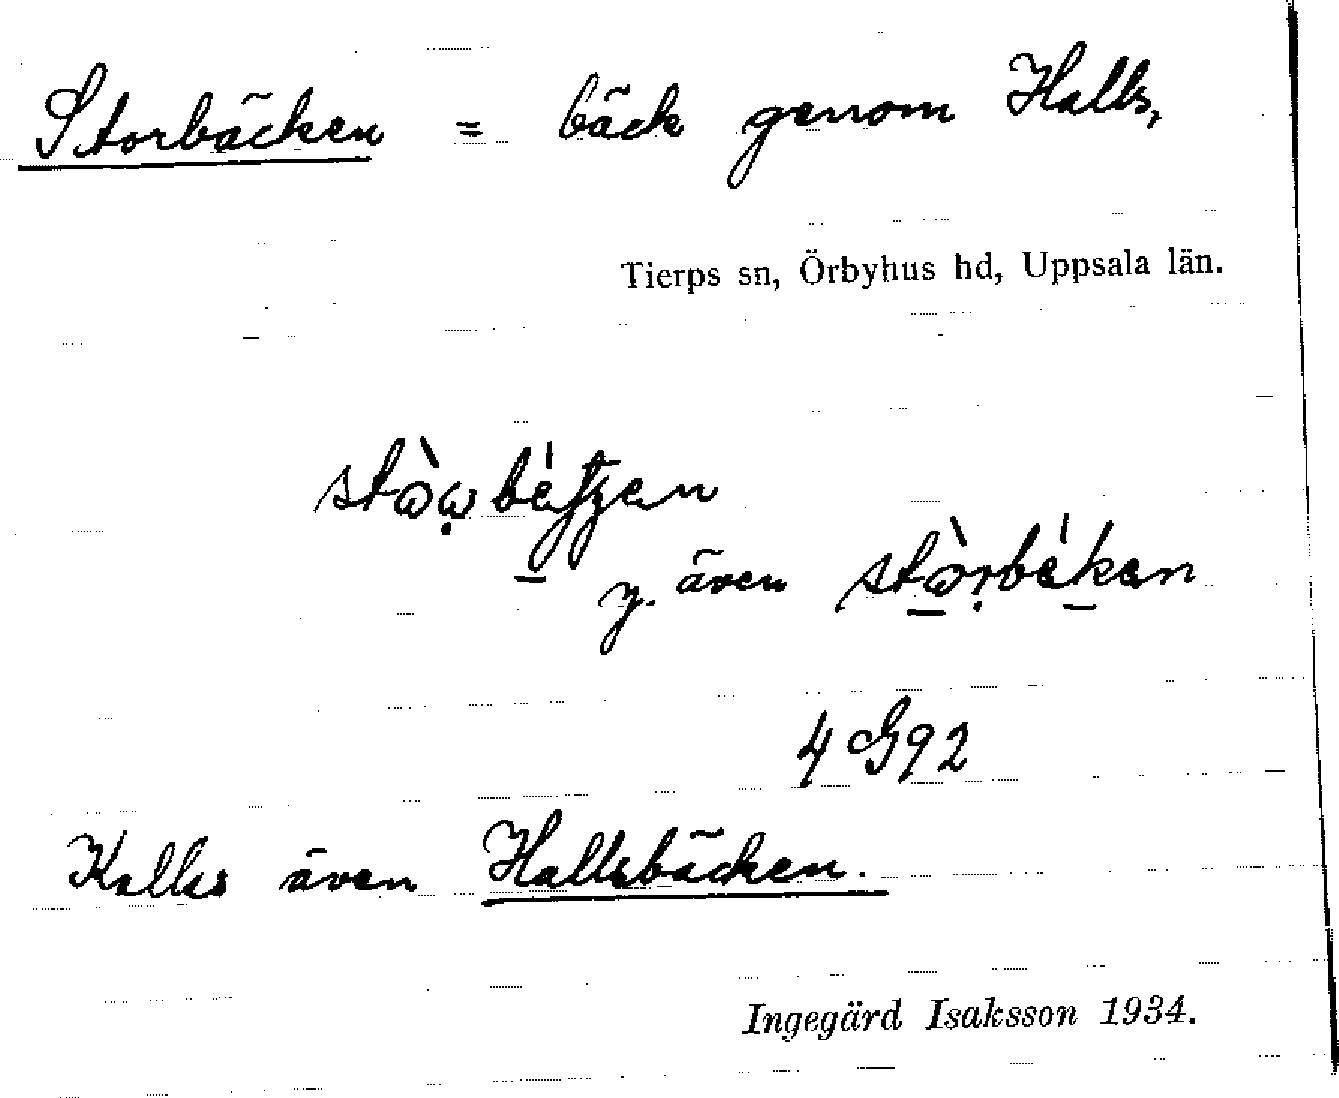 Storbäcken = bäck genom Halls,
Tierps sn, Örbyhus hd, Uppsala län.
y. även
4 G 92
Kallas även Hallsbäcken.
Ingegärd Isaksson 1934.